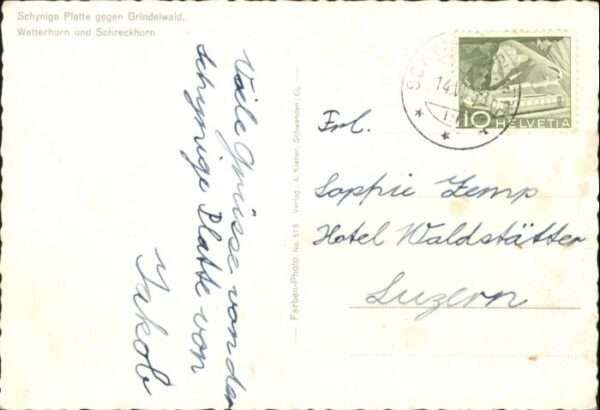 Schynige Platte gegen Grindelwald.
Wetterhorn und Schreckhorn
Viele Grüsse von der
schynige Platte von
Jakob
Farben-Photo No. 578 Verlag A. Stauer, Schwanden/GL.
10 HELVETIA
Frl.
Sophie Zemp
Hotel Waldstätter
Luzern